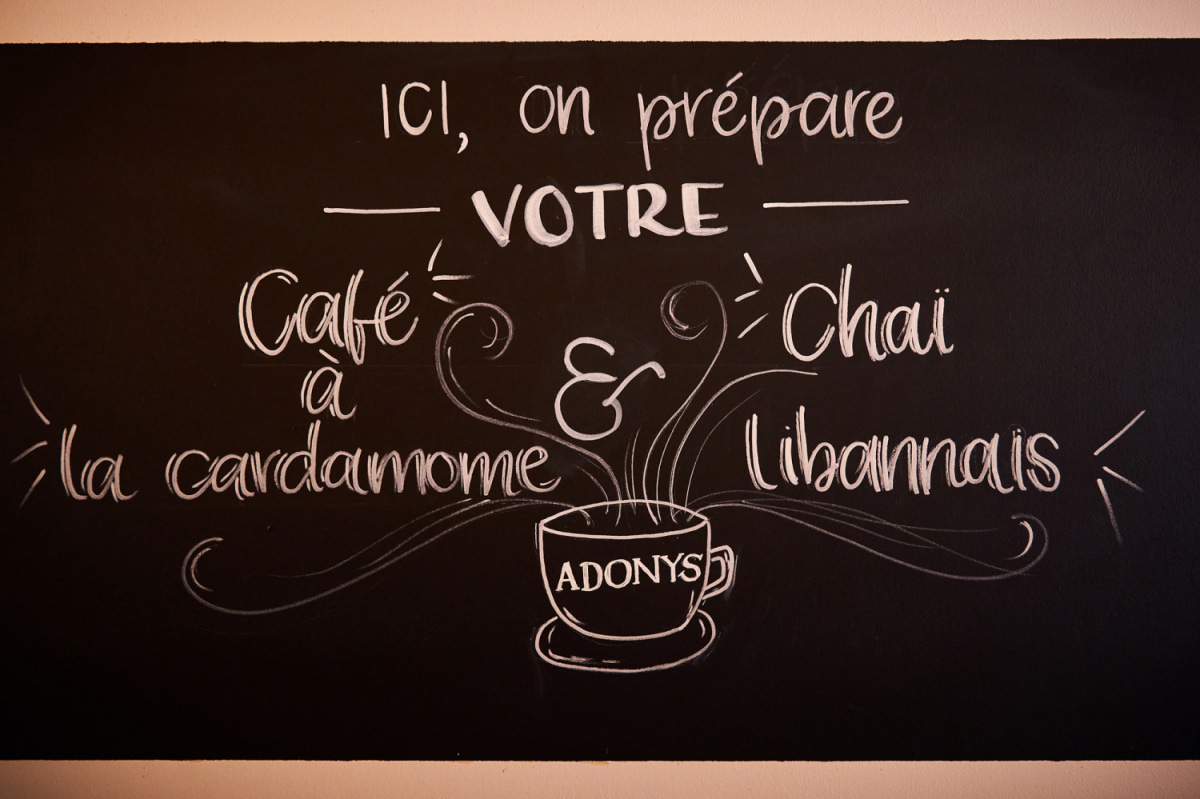 ICI, on prépare
VOTRE
Café
à
la cardamome
&
Chaï
libannais
ADONYS